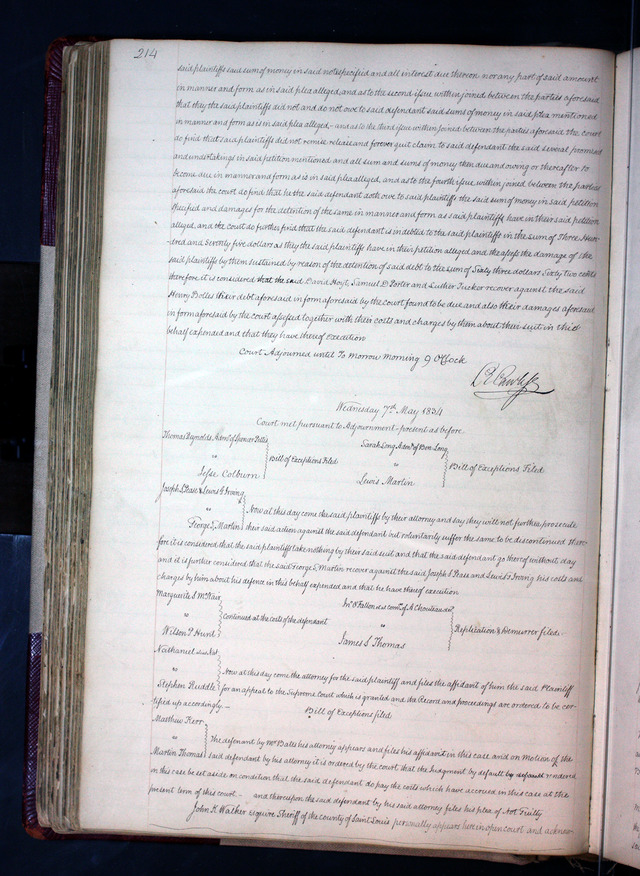 214
said plaintiffs said sum of money in said note specified and all interest due thereon nor any part of said amount
in manner and form as in said plea alleged, and as to the second issue within joined between the parties aforesaid
that they the said plaintiffs did not and do not owe to said defendant said sums of money in said plea mentioned
in manner and form as is in said plea alleged,- and as to the third issue within joined between the parties aforesaid the court
do find that said plaintiffs did not remise release and forever quit claim to said defendant the said several promises
and undertakings in said petition mentioned and all sum and sums of money then due and owing or thereafter to
become due in manner and form as is in said plea alleged, and as to the fourth issue within joined between the parties
aforesaid the court do find that he the said defendant doth owe to said plaintiffs the said sum of money in said petition
specified and damages for the detention of the same in manner and form as said plaintiffs have in their said petition
alleged, and the court do further find that the said defendant is indebted to the said plaintiffs in the sum of Three Hun-
dred and Seventy five dollars as they the said plaintiffs have in their petition alleged and the assess the damage of the
said plaintiffs by them sustained by reason of the detention of said debt to the sum of Sixty three dollars Sixty two cents
therefore it is considered that the said David Hoyt, Samuel D. Porter and Luther Tucker recover against the said
Henry Bolles their debt aforesaid in form aforesaid by the court found to be due and also their damages aforesaid
in form aforesaid by the court assessed together with their costs and charges by them about their suit in this
behalf expended and that they have thereof execution
Court Adjourned until To morrow morning 9 O'Clock
Wednesday 7th May 1834
Court met pursuant to Adjournment present as before
Thomas Reynolds Admr of Spencer Pettis
vs
Jesse Colburn
Bill of Exceptions Filed
Sarah Long Admx of Ben Long
vs
Lewis Martin
Bill of Exceptions Filed
Joseph S. Pease & Lewis S Irving
vs
George L Martin
Now at this day come the said plaintiffs by their attorney and say they will not further prosecute
their said action against the said defendant but voluntarily suffer the same to be discontinued there-
fore it is considered that the said plaintiff take nothing by their said suit and that the said defendant go thereof without day
and it is further considered that the said George L Martin recover against the said Joseph S Pease and Lewis S Irving his costs and
charges by him about his defence in this behalf expended and that he have thereof execution
Marguerite S McNair
vs
Wilson P Hunt
Continued at the costs of the defendant
James S Thomas
Replication & Demurrer filed.
Nathaniel
vs
Stephen Ruddle
Now at this day come the attorney for the said plaintiff and files the affidavit of him the said Plaintiff
for an appeal to the Supreme Court which is granted and the Record and proceedings are ordered to be cer-
tified up accordingly -
Bill of Exceptions filed
Matthew Kerr
vs
Martin Thomas
The defenant by Mr Bates his attorney appears and files his affidavit in this case and on Motion of the
said defendant by his attorney it is ordered by the court that the Judgment by default by default rendered
in this case be set aside on condition that the said defendant do pay the costs which have accrued in this case at the
present term of this court - and thereupon the said defendant by his said attorney files his plea of Not Guilty
John K. Walker esquire Sheriff of the county of Saint Louis personally appears here in open court and acknow